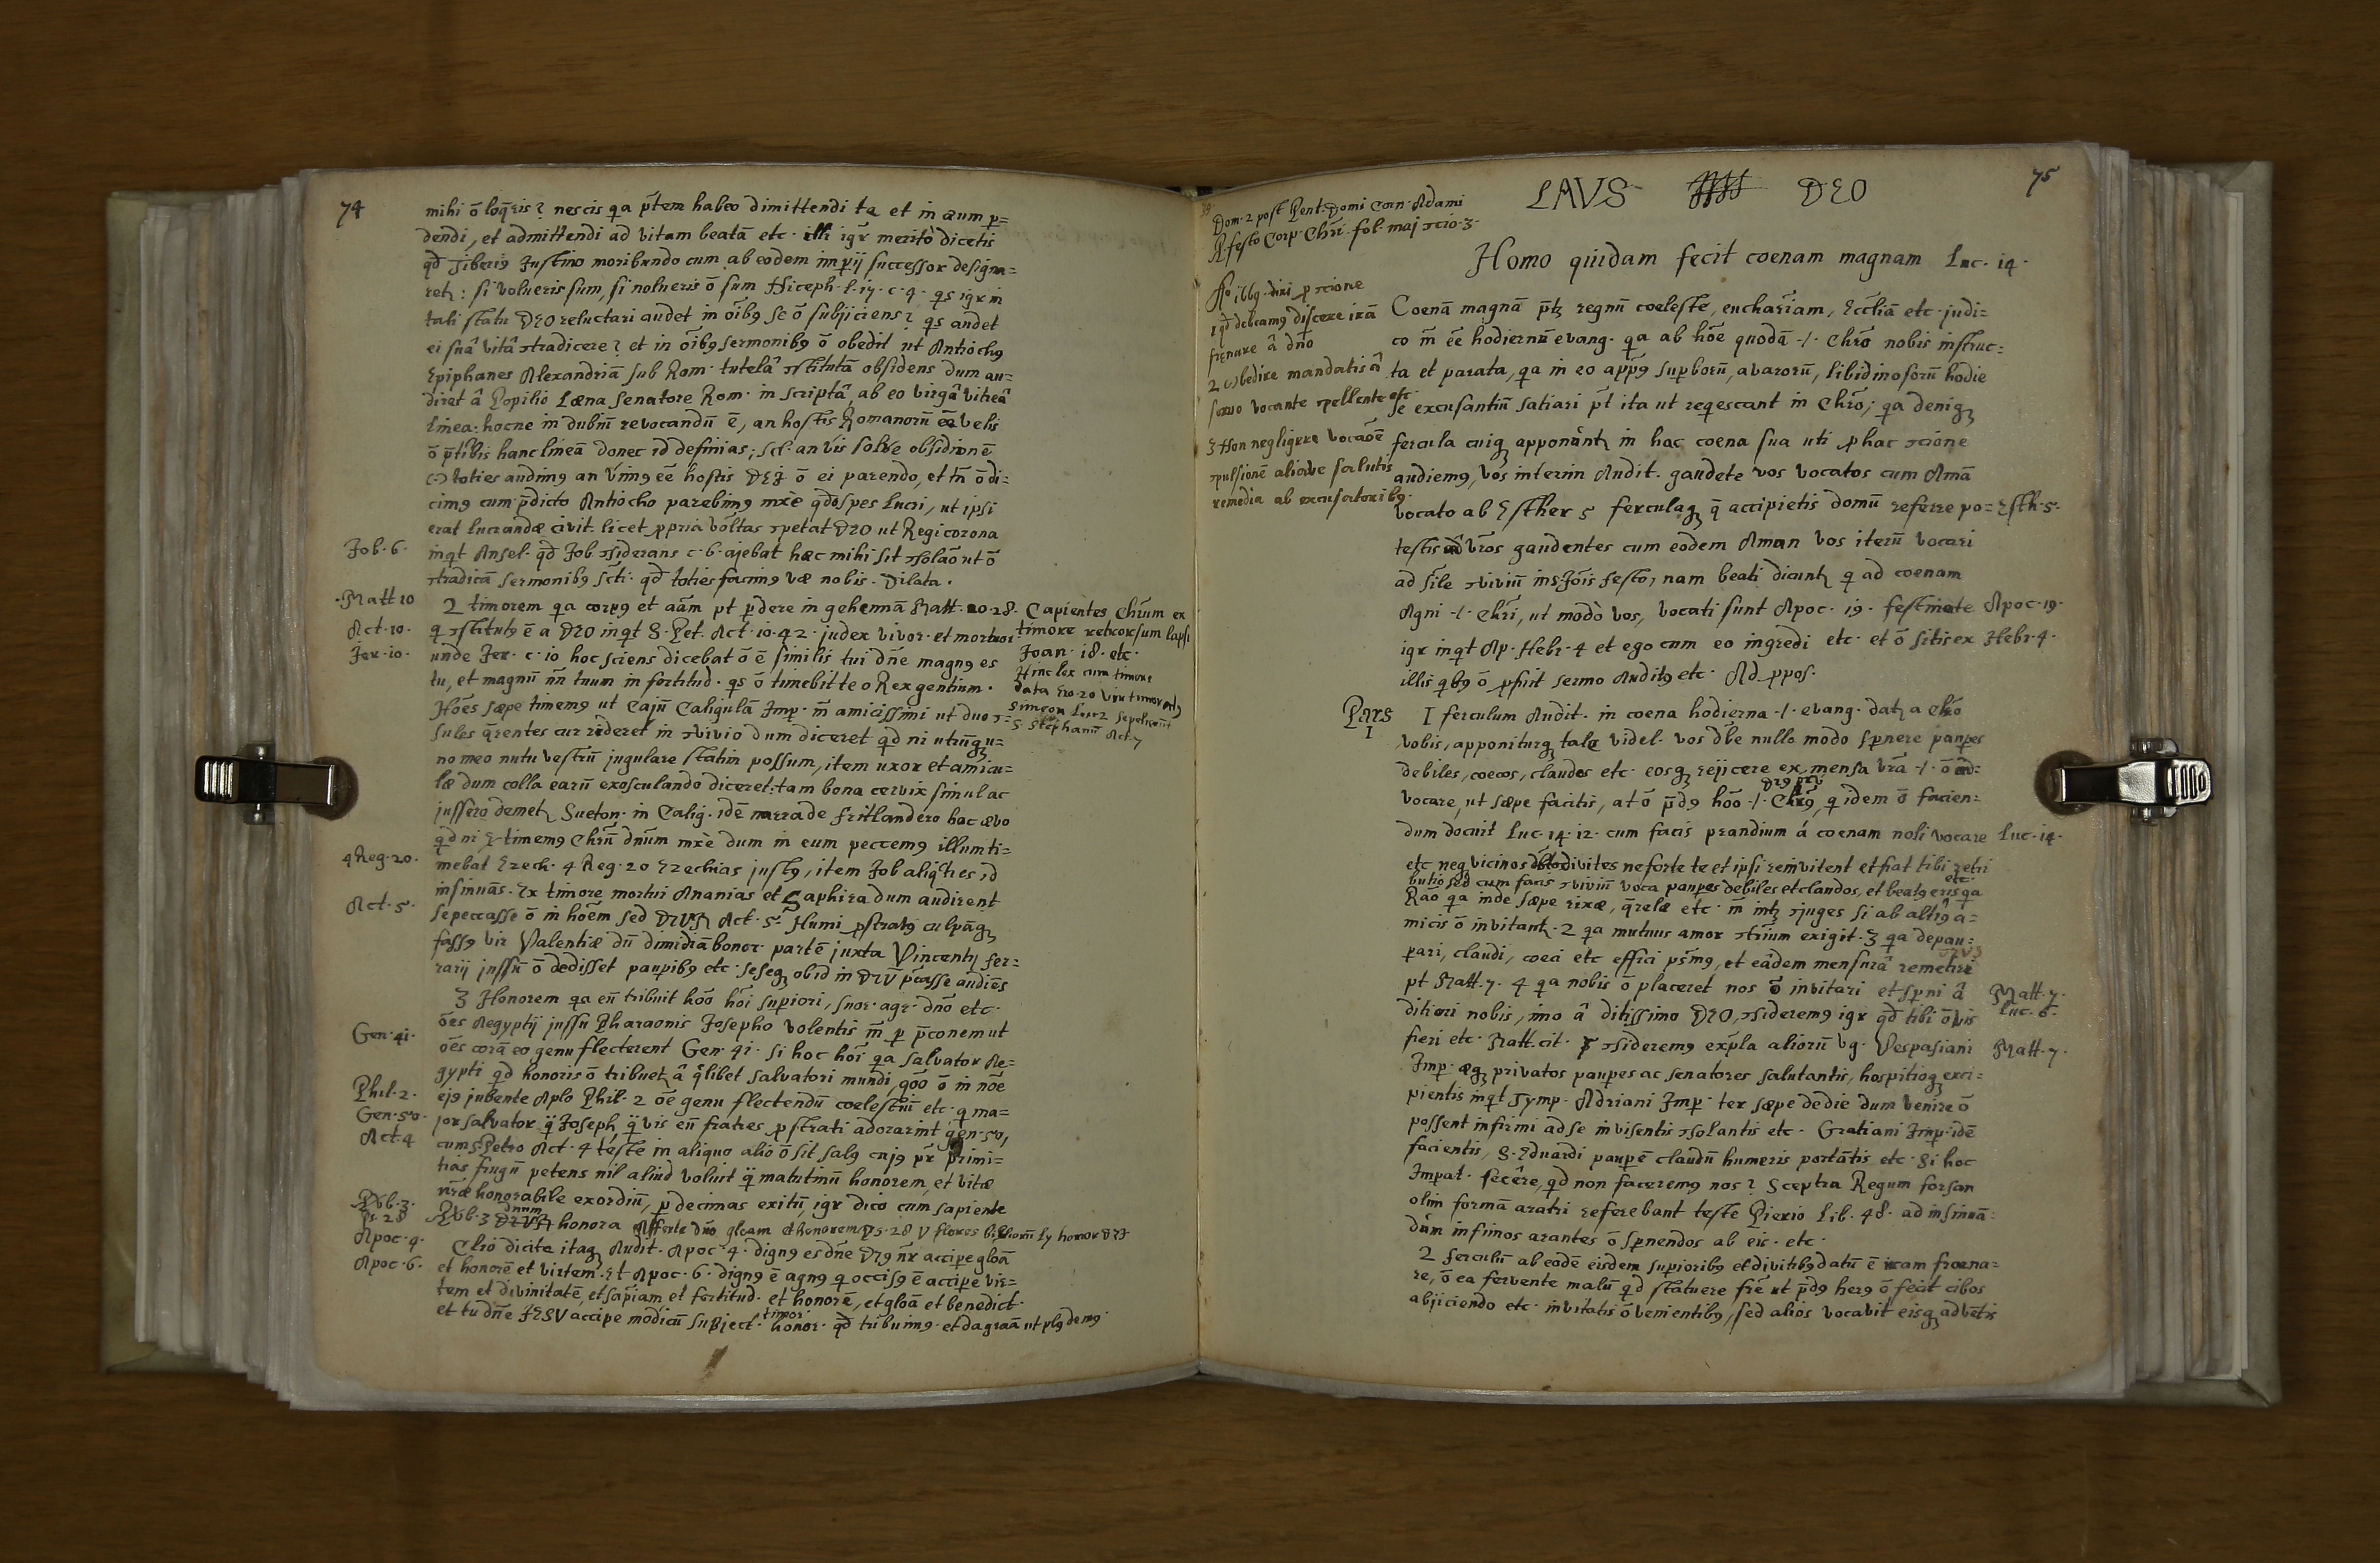 74
mihi ō loq̄ris? nescis qa p̄tem habeo dimittendi te et in æum p=
dendi, et admittendi ad vitam beatā etc. illi igr meritò dicetis
qd Tiberiꝰ Justino moribundo cum ab eodem imperij successor designa=
retr: si volueris sum, si nolueris ō sum Niceph. l. 17. c. 4. qs igr in
tali statu DEO reluctari audet in oībꝰ se ō subjiciens? qs audet
ei suâ vitâ ɔtradicere? et in oībꝰ sermonibꝰ ō obedit ut Antiochꝰ
Epiphanes Alexandriā sub Rom. tutelâ ɔstitutā obsidens dum au=
diret â Popilio Læna Senatore Rom. in scriptâ, ab eo virgâ vitreâ
linea: hocne in dubiū revocandū ē, an hostis Romanorū eē velis
ō p̄tibis hanc lineā donec id definias; scl. an vis solve obsidionē
toties audimꝰ an vimꝰ eē hostis DEJ ō ei parendo, et tn̄ ō di:
cimꝰ cum p̄dicto Antiocho parebimꝰ mxè qdo spes lucri, ut ipsi
erat lucrandæ civit. licet ppria vōltas ɔpetat DEO ut Regi corona
Job. 6. inqt Ansel. qd Job ɔsiderans c. 6. ajebat hæc mihi sit ɔsolaō ut ō
ɔtradicā sermonibꝰ scti. qd toties facimꝰ væ nobis. Dilata.
Matt 10 2 timorem qa corpꝰ et aām pt perdere in gehennā Matt. 10. 28. Capientes Chrum ex
Act. 10. q ɔstitutꝰ ē a DEO inqt S. Pet. Act. 10. 42. judex vivor. et mortuor. timore retrorsum lapsi
Jer. 10. unde Jer. c. 10 hoc sciens dicebat ō ē similis tui dn̄e magnꝰ es Joan. 18. etc.
tu, et magnū nn̄ tuum in fortitud. qs ō timebit te o Rex gentium. Hinc lex cum timore
data Exo. 20
Hoēs sæpe timemꝰ ut Cajū Caligulā Imp. m̄ amicissimi ut duo ɔ= Simeon Luc. 2
sules q̄rentes cur rideret in ɔvivio dum diceret qd ni utrūqu= S Stephanū Act. 7
no meo nutu vestrū jugulare statim possum, item uxor et amicu=
læ dum colla earū exosculando diceret: tam bona cervix simul ac
jussero demetr Sueton. in Calig. idē narra de fritlandero hac ævo
qd ni timemꝰ Chrū dnūm mxè dum in eum peccemꝰ illum ti=
4 Reg. 20. mebat Ezech. 4 Reg. 20 Ezechias justꝰ, item Job aliqties id
insinuās. Ex timore mortui Ananias et Saphira dum audirent
Act. 5. se peccasse ō in hoēm sed DEUM Act. 5. Humi pstratꝰ culpāq
fassꝰ vir Valentiæ dū dimidiā bonor. partē juxta Vincentij fer=
rarij jussū ō dedisset pauperibꝰ etc. seseq ob id in DEŪ pccasse audiēs
3 Honorem qa eū tribuit hōo hōi superiori, suor. agr. dnō etc.
ōes Aegyptij jussu Pharaonis Josepho volentis m̄ p p̄conem ut
Gen. 41. oēs corā eo genu flecterent Gen. 41. Si hoc hoi qa salvator Ae=
gypti qd honoris ō tribuetr â qlibet salvatori mundi, qoo ō in noē
Phil. 2. ejꝰ jubente Aplo Phil. 2 oē genu flectendū coelestiū etc. q ma=
Gen. 50. jor salvator q̄ Joseph, q̄ vis eū fratres pstrati adorarint gen. 50,
Act. 4 cum S. Petro Act. 4 teste in aliquo alio ō sit salꝰ cujꝰ pr̄ primi=
tias frugū petens nil aliud voluit q̄ matutinū honorem, et vitæ
nr̄æ honorabile exordiū, p decimas exitū, igr dico cum sapiente
Pvb. 3. Pvb. 3 DEUM dnum honora
Ps. 28 Afferte dn̄o gloām et honorem Ps. 28
Apoc. 4. Chro dicite itaq Audit. Apoc. 4. dignꝰ es dn̄e DEꝰ nr̄ accipe gloā
Apoc. 6. et honorē et virtem. Et Apoc. 6. dignꝰ ē agnꝰ q occisꝰ ē accipe vir=
tem et divinitatē, et sapiam et fortitud. et honorē, et gloā et benedict.
et tu dn̄e JESU accipe modicū subject. timor. honor. qd tribuimꝰ. et da graā ut plꝰ demꝰ
75
LAVS DEO
Dom. 2 post Pent. Domi Coen. Adami
P. festo Corp. Chri. fol. maj ɔcio. 3.
Homo quidam fecit coenam magnam Luc. 14.
Aō 1669. dixi p ɔcione
1 qd debeamꝰ discere irā
frenare â dn̄o
2 obedire mandatis â
servo vocante ɔpellente etc.
3 Non negligere vocaoē
ɔpulsionē aliave salutis
remedia ab excusatoribꝰ.
Coenā magnā p̄tr regnū coeleste, euchariam, Eccliā etc. judi=
co m̄ eē hodiernū evang. qa ab hōe quodā .|. Chrō nobis instruc=
ta et parata, qa in eo appꝰ superborū, avarorū, libidinosorū hodie
se excusantiū satiari pt ita ut reqescant in Chrō; qa deniq
fercula cuiq apponūntr in hac coena sua uti p hac ɔcione
audiemꝰ, vos interim Audit. gaudete vos vocatos cum Amā
vocato ab Esther 5 ferculaq q̄ accipietis domū referre po= Esth. 5.
testis ad vr̄os gaudentes cum eodem Aman vos iterū vocari
ad sīle ɔviviū in S. Joīs festo, nam beati dicuntr q ad coenam
Agni .|. Chri, ut modò vos, vocati sunt Apoc. 19. festinate Apoc. 19.
igr inqt Ap. Hebr. 4 et ego cum eo ingredi etc. et ō sitis ex Hebr. 4.
illis qbꝰ ō pfuit sermo Auditꝰ etc. Ad ppos.
Pars 1 I ferculum Audit. in coena hodierna .|. evang. datr a Chrō
vobis, apponiturq tale videl. vos dbe nullo modo spernere pauperes
debiles, coecos, claudos etc. eosq rejicere ex mensa vr̄a .|. ō in=
vocare, ut sæpe facitis, at ō p̄dꝰ hōo .|. Chrꝰ, q idem ō facien=
dum docuit Luc. 14. 12. cum facis prandium á coenam noli vocare Luc. 14.
etc neq vicinos divites ne forte te et ipsi reinvitent et fiat tibi retri
butio sed cum facis ɔviviū voca pauperes debiles et claudos, et beatꝰ eris qa etc.
Raō qa inde sæpe rixæ, q̄relæ etc. m̄ intr ɔjuges si ab altiꝰ a=
micis ō invitantr. 2 qa mutuus amor ɔtrium exigit. 3 qa depau=
pari, claudi, coeci etc effici psmꝰ, et eâdem mensurâ remetiri
pt Matt. 7. 4 qa nobis ō placeret nos ō invitari et sperni â Matt. 7.
ditiori nobis, imo â ditissimo DEO, ɔsideremꝰ igr qd tibi ō vis Luc. 6.
fieri etc. Matt. cit. ɔsideremꝰ exp̄la aliorū vg. Vespasiani Matt. 7.
Imp. æq privatos pauperes ac senatores salutantis, hospitioq exci=
pientis inqt Tymp. Adriani Imp. ter sæpe de die dum venire ō
possent infirmi ad se invisentis ɔsolantis etc. Gratiani Imp. idē
facientis, S. Eduardi pauperē claudū humeris portātis etc. Si hoc
Imperat. fecêre, qd non faceremꝰ nos? Sceptra Regum forsan
olim formā aratri referebant teste Pierio Lib. 48. ad insinuā=
dum infimos arantes ō spernendos ab eis. etc.
2 ferculū ab eodē eisdem superioribꝰ et divitibꝰ datū ē iram froena=
re, ō ea fervente malū qd statuere fr̄e ut p̄dꝰ herꝰ ō fecit cibos
abjiciendo etc. invitatis ō venientibꝰ, sed alios vocavit eisq advētis